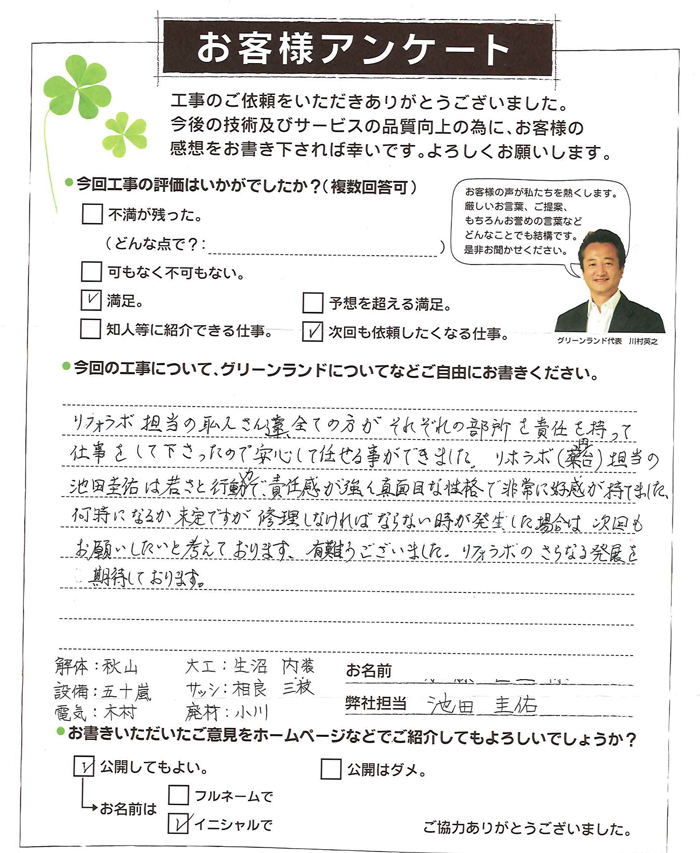 お客様アンケート
工事のご依頼をいただきありがとうございました。
今後の技術及びサービスの品質向上の為に、お客様の
感想をお書き下されば幸いです。よろしくお願いします。
今回工事の評価はいかがでしたか?(複数回答可)
お客様の声が私たちを熱くします。
厳しいお言葉、ご提案、
もちろんお誉めの言葉など
どんなことでも結構です。
是非お聞かせください。
グリーンランド代表 川村英之
不満が残った。
(どんな点で?: )
可もなく不可もない。
満足。 予想を超える満足。
知人等に紹介できる仕事。 次回も依頼したくなる仕事。
今回の工事について、グリーンランドについてなどご自由にお書きください。
リフォラボ担当の職人さん達、全ての方がそれぞれの部所を責任を持って
仕事をして下さったので安心して任せる事ができました。リホラボ(葉台)担当の
池田圭佑は若さと行動力で、責任感が強く真面目な性格で非常に好感が持てました、
何時になるか未定ですが修理しなければならない時が発生した場合は次回も
お願いしたいと考えております、有難うございました。リフォラボのさらなる発展を
期待しております。
解体:秋山 大工:生沼 内装
設備:五十嵐 サッシ:相良 三枝
電気:木村 廃材:小川
お名前
弊社担当 池田 圭佑
お書きいただいたご意見をホームページなどでご紹介してもよろしいでしょうか?
公開してもよい。 公開はダメ。
お名前は
フルネームで
イニシャルで
ご協力ありがとうございました。